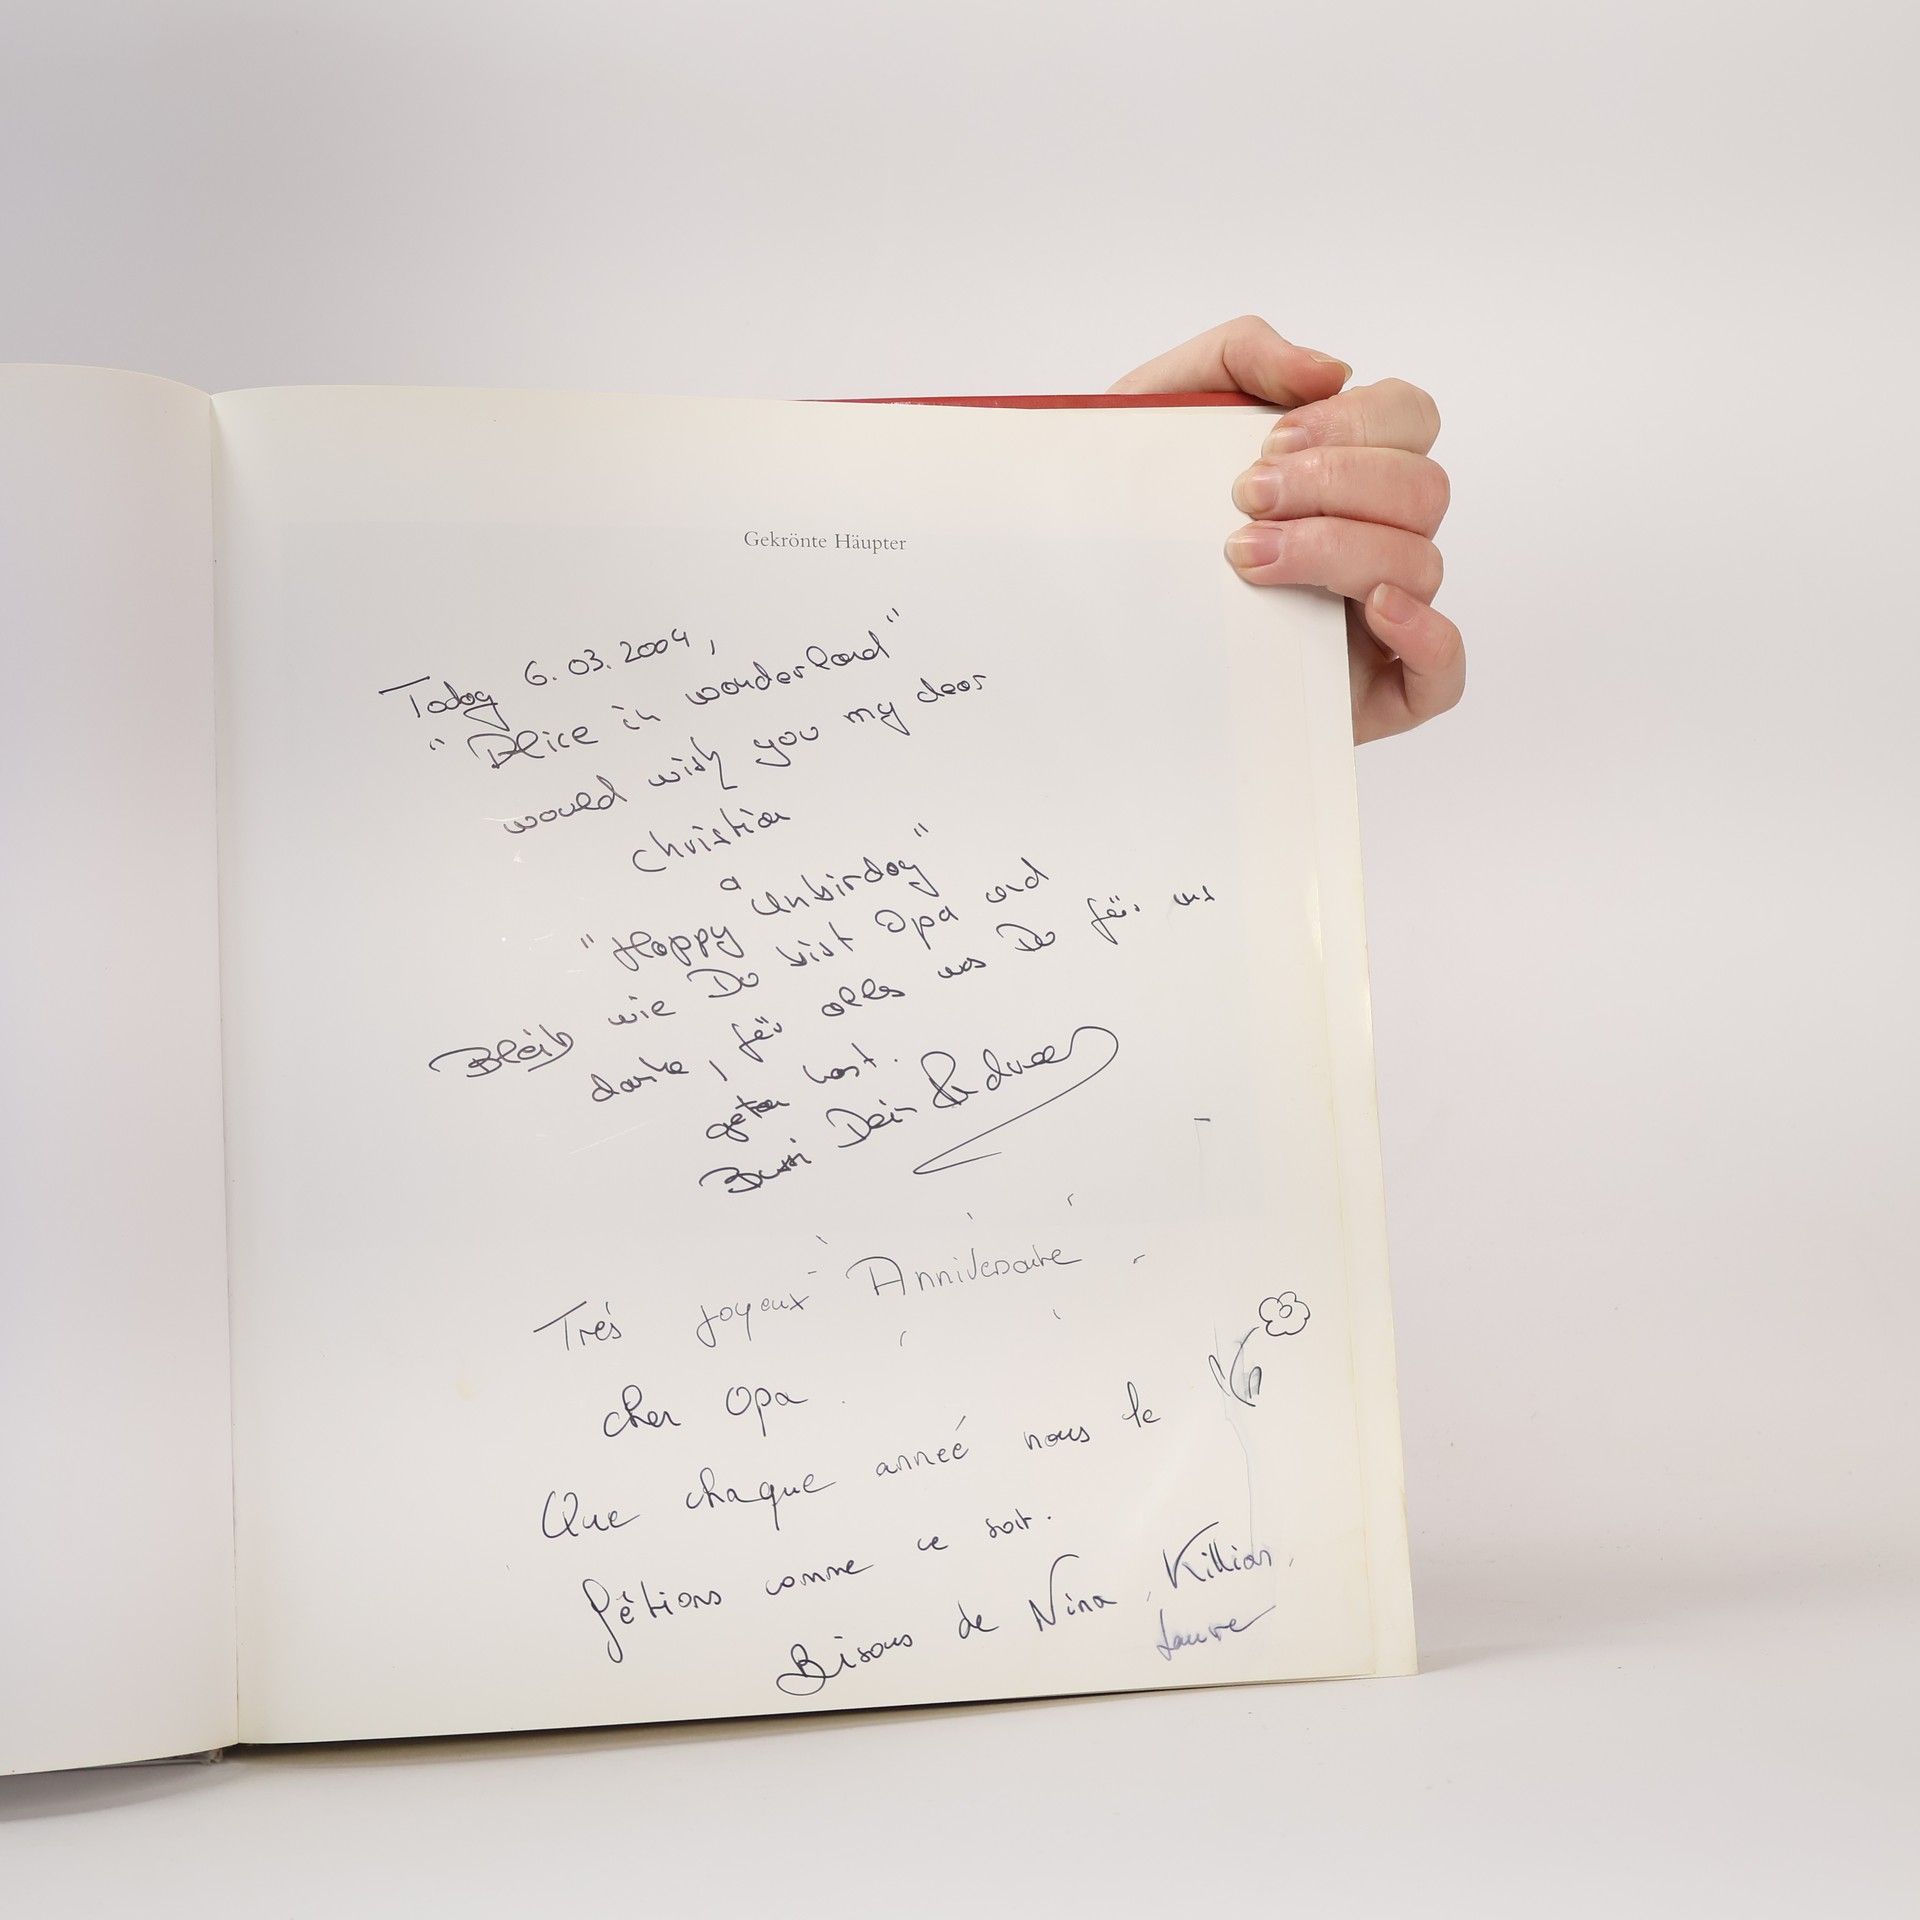 Gekrönte Häupter
Today 6.03.2004,
"Alice in wonderland"
would wish you my dear
Christian
a
"Happy Unbirday"
Bleib wie Du bist Opa und
danke, für alles was Du für uns
getan hast.
Bussi Dein Andreas
Trés joyeux Anniversaire
cher Opa.
Que chaque anneé nous le
fêtions comme ce soit.
Bisous de Nina, Killian,
Laure